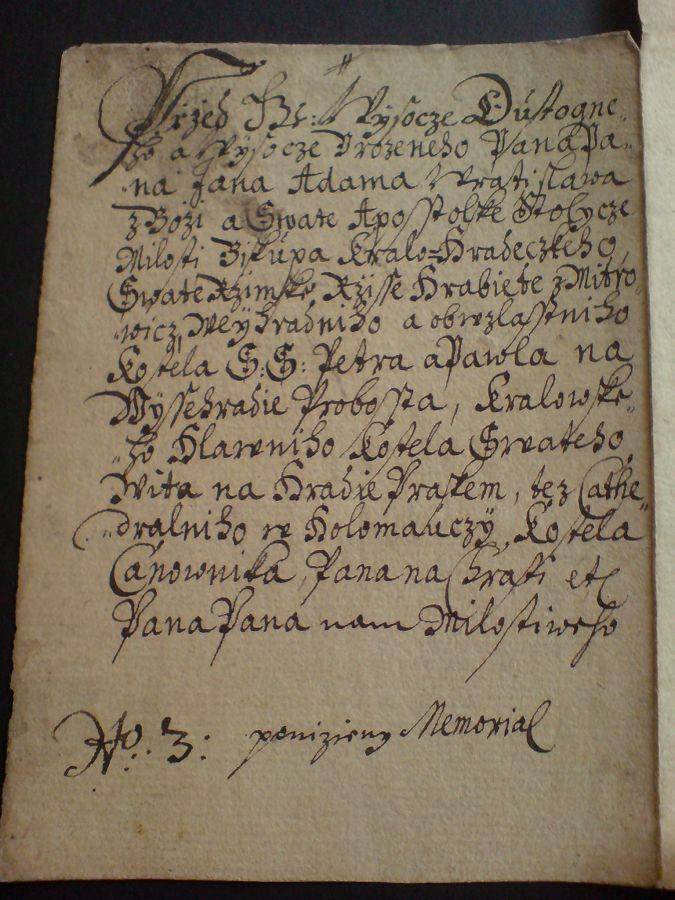 Przed Jeh: Wysocze Dustogne-
ho a Wysocze Urozeneho Pana Pa-
na Jana Adama Wratislawa
z Bozi a Swate Aposstolske Stolycze
Milosti Biskupa Kralo=Hradeczkeho,
Swate Rzimske Rzisse Hrabiete z Mitro-
wicz, Weyhradniho a obwzlasstniho
Kostela S: S: Petra a Pawla na
Wyssehradie Probossta, Kralowske-
ho Hlawniho Kostela Swateho
Wita na Hradie Praskem, tez Cathe-
dralniho w Holomauczy Kostela
Canownika, Pana na Chrasti etc
Pana Pana nam Milostiweho
No. 3: ponizieny Memorial